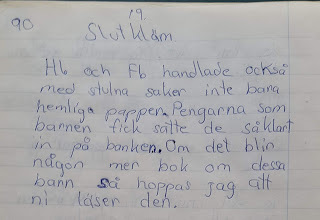 19.
90
Slutkläm.
Hb och Fb handlade också
med stulna saker inte bara
hemliga papper. Pengarna som
barnen fick satte de såklart
in på banken. Om det blir
någon mer bok om dessa
barn så hoppas jag att
ni läser den.